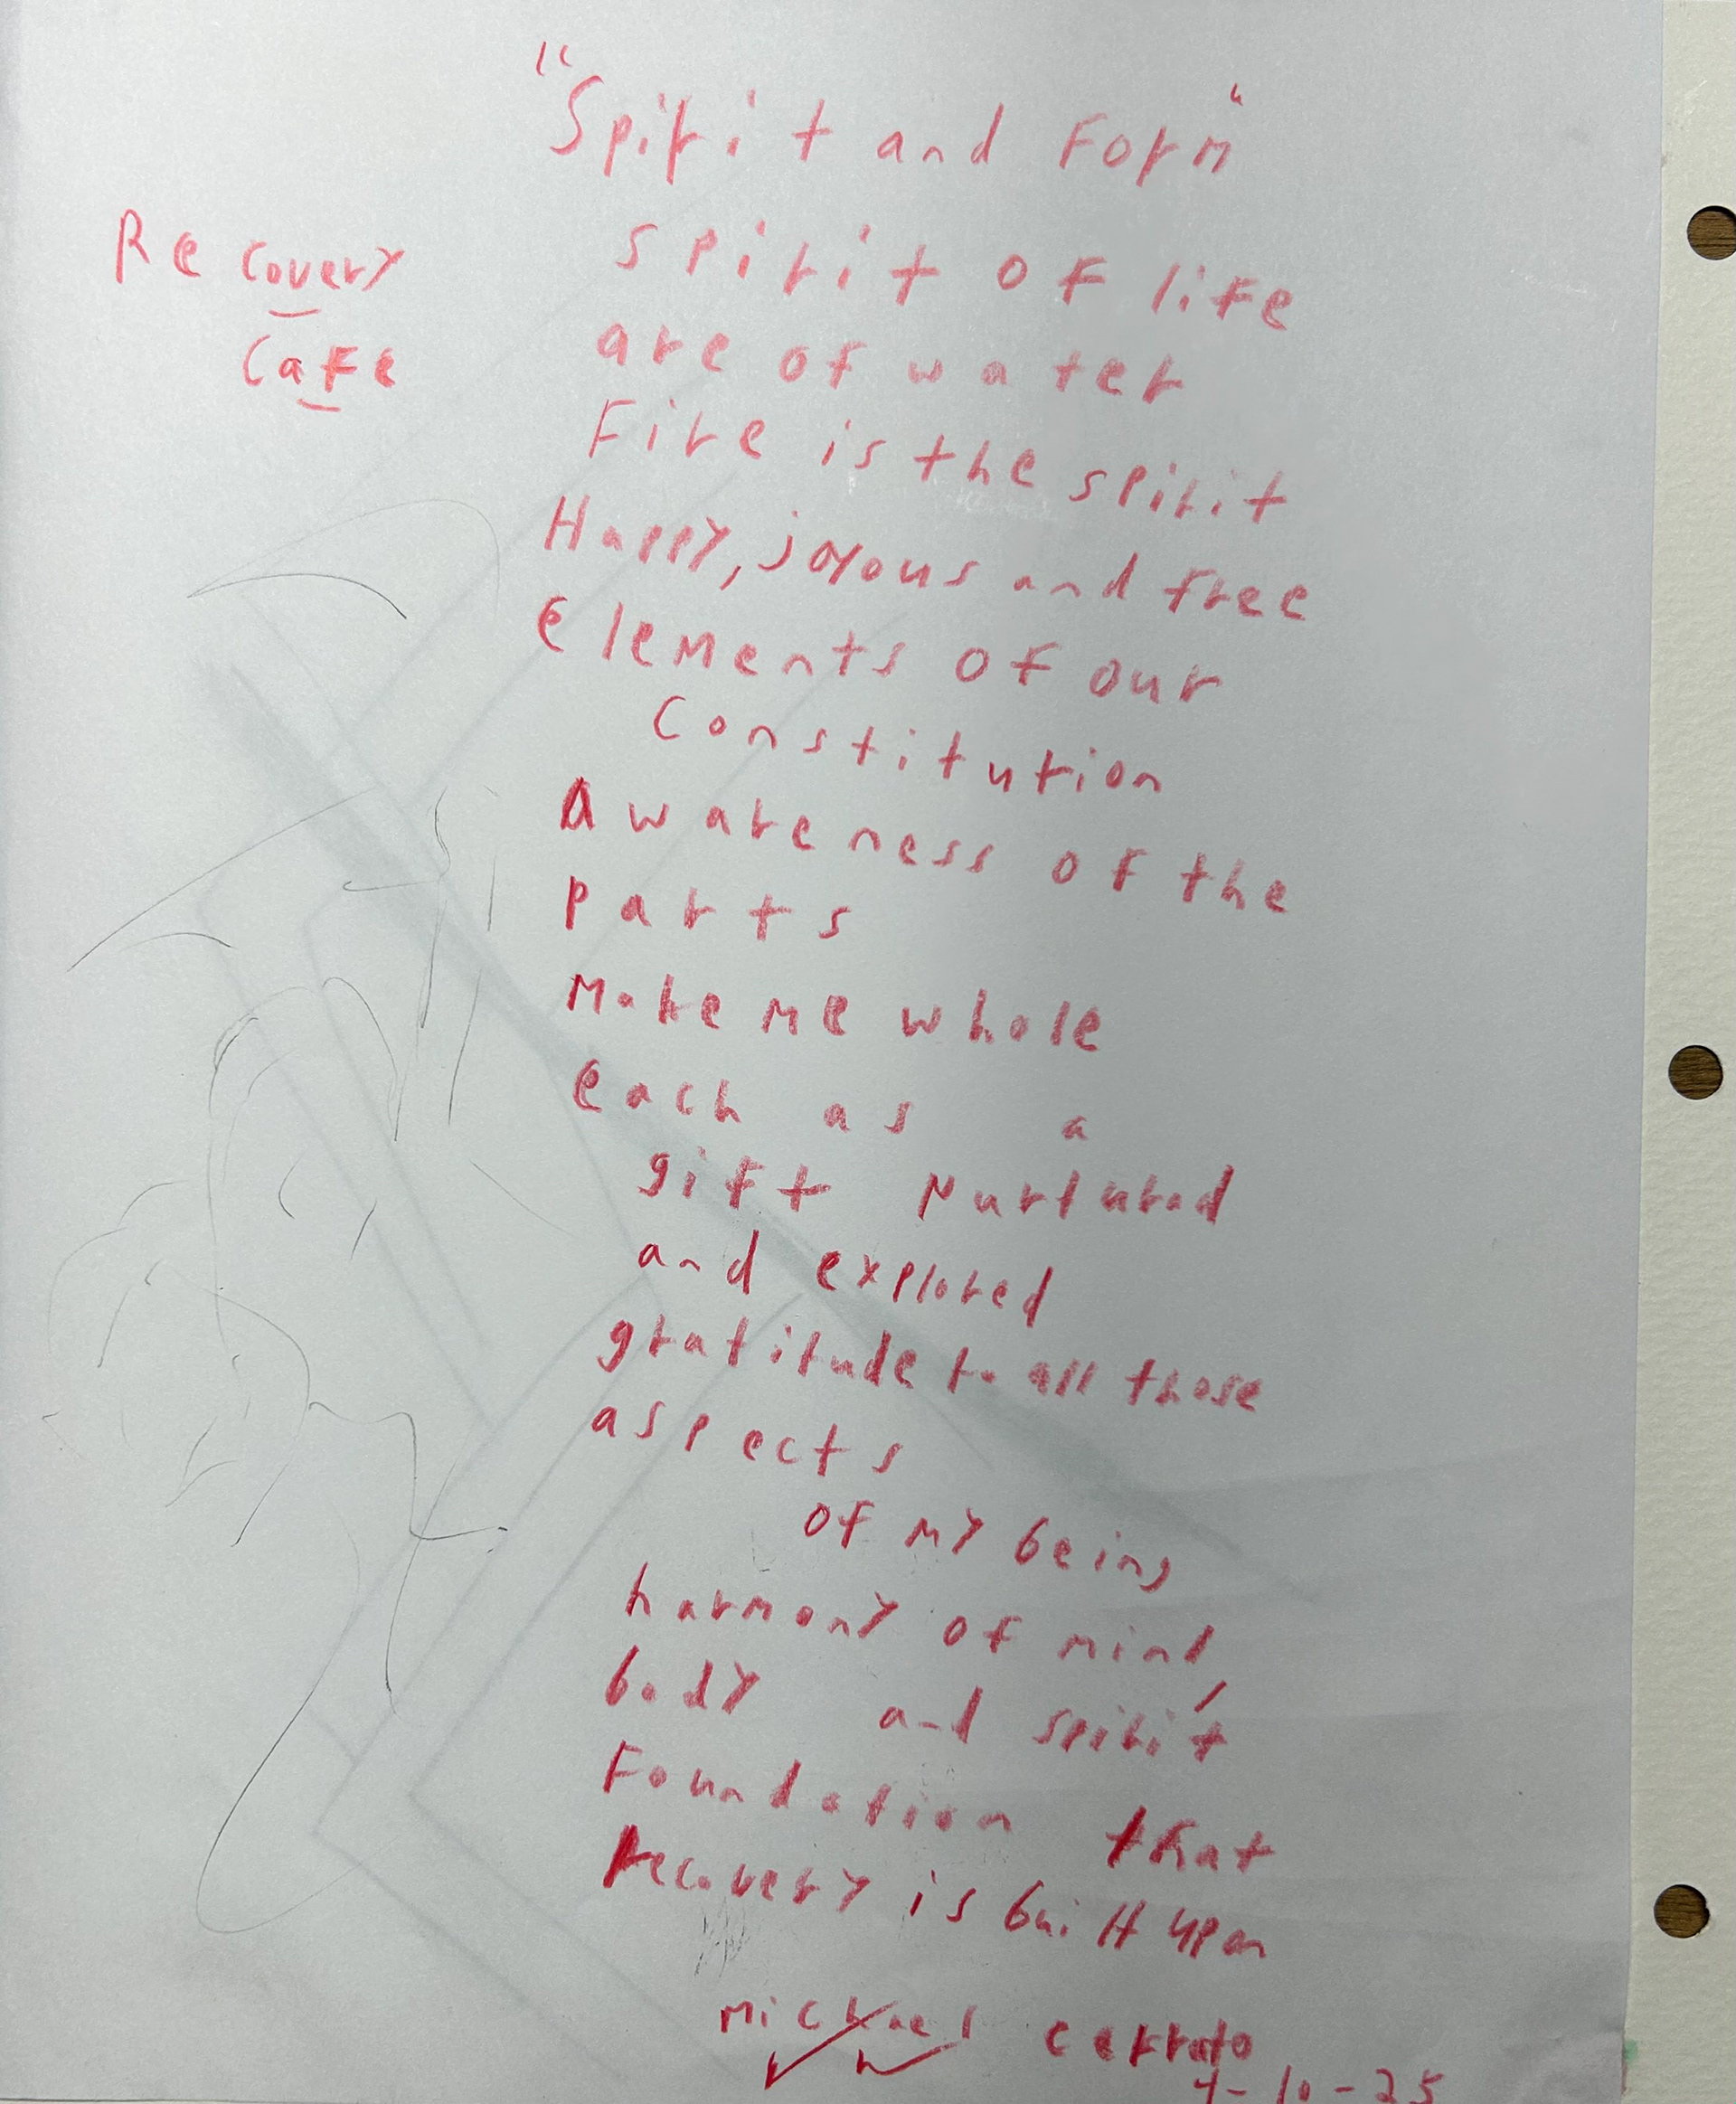 "Spirit and Form"
Recovery
Cafe
Spirit of life
are of water
Fire is the spirit
Happy, joyous and free
Elements of our
Constitution
Awareness of the
parts
make me whole
each as a
gift Nurtured
and explored
gratitude to all those
aspects
of my being
harmony of mind,
body and spirit
Foundation that
recovery is built upon
Michael Cerrato
4-10-25